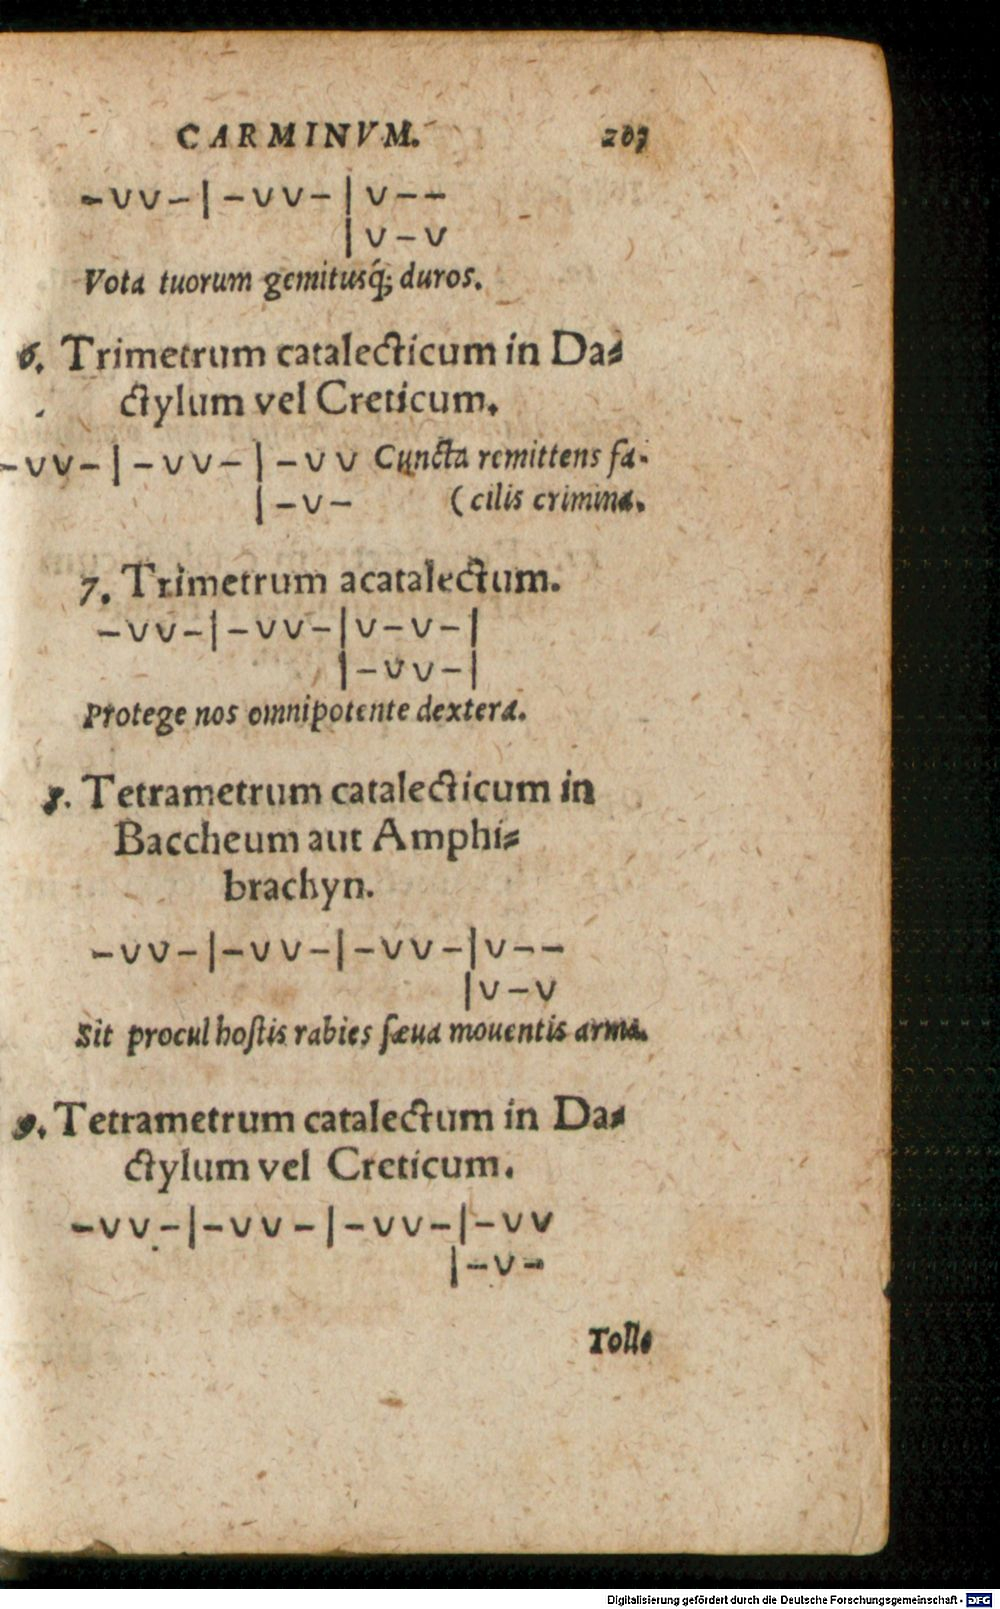 CARMINVM. 207
-vv-|-vv-|v--
|v-v
Vota tuorum gemitusq́; duros.
6. Trimetrum catalecticum in Da⸗
ctylum vel Creticum.
-vv-|-vv-|-vv Cuncta remittens fa-
|-v- (cilis crimina.
7. Trimetrum acatalectum.
-vv-|-vv-|v-v-|
|-vv-|
Protege nos omnipotente dextera.
8. Tetrametrum catalecticum in
Baccheum aut Amphi⸗
brachyn.
-vv-|-vv-|-vv-|v--
|v-v
Sit procul hoſtis rabies ſæua mouentis arma.
9. Tetrametrum catalectum in Da⸗
ctylum vel Creticum.
-vv-|-vv-|-vv-|-vv
|-v-
Tolle
Digitalisierung gefördert durch die Deutsche Forschungsgemeinschaft - DFG